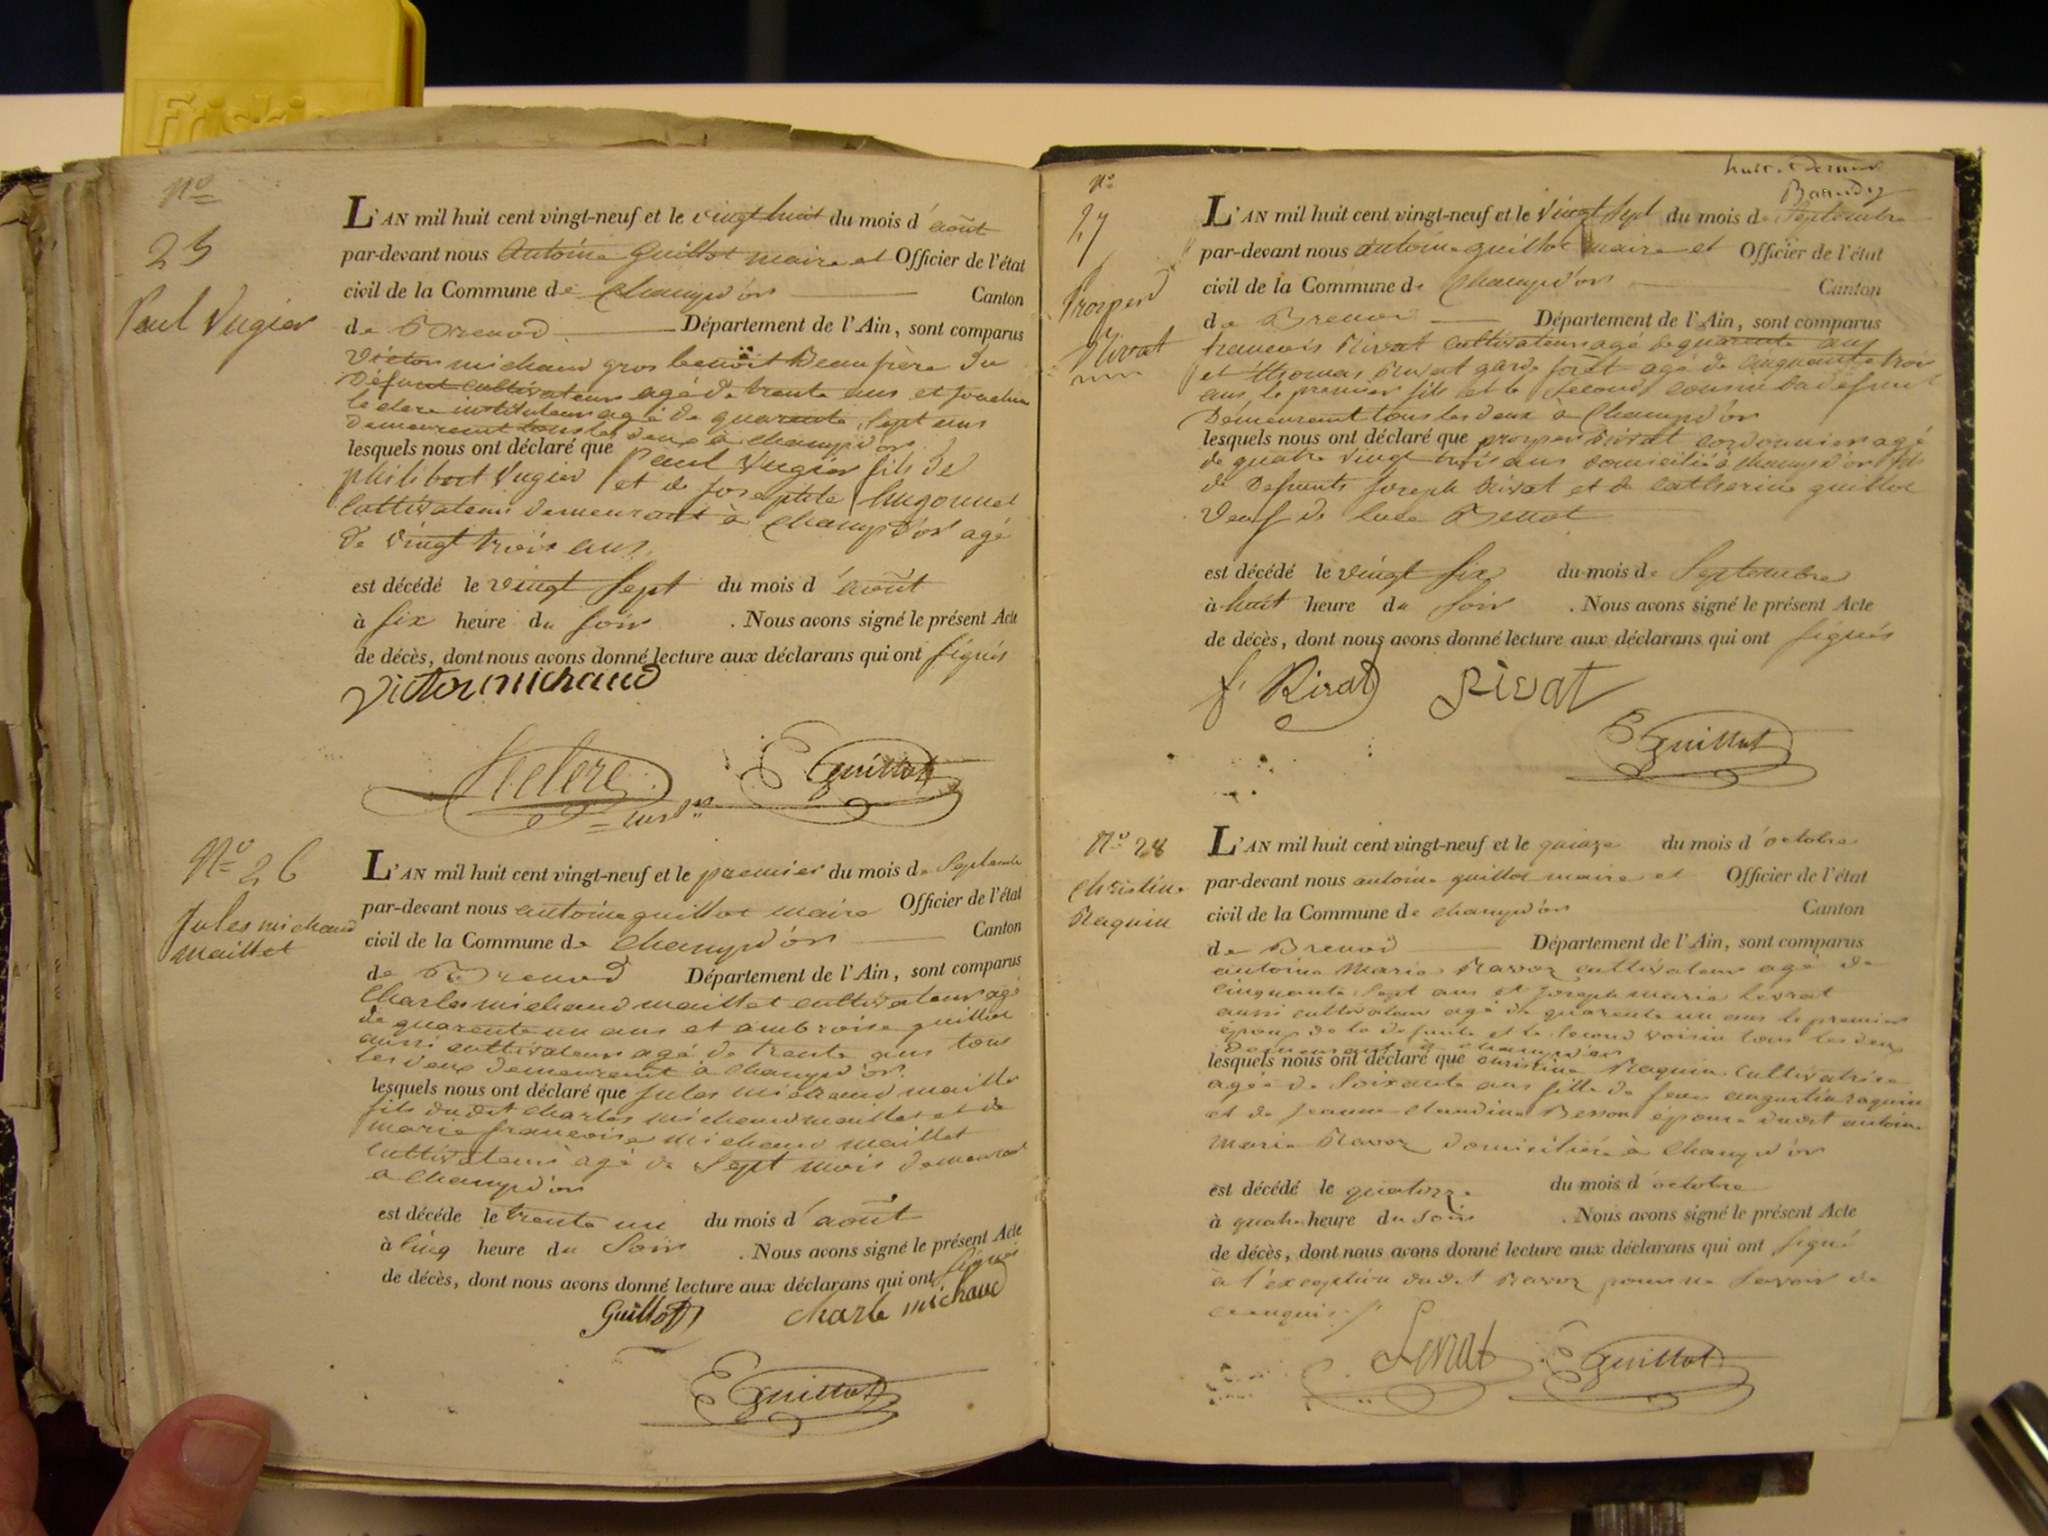 Friskies
N°
25
Paul Vugier
L'AN mil huit cent vingt-neuf et le vingt huit du mois d'août
par-devant nous Antoine Guillot maire et Officier de l'état
civil de la Commune de Champd'or Canton
de Brenod Département de l'Ain, sont comparus
Victor michaud gros benoît Beaufrère du
Défunt cultivateur agé de trente ans et
leclere instituteur agé de quarante sept ans
demeurant tous les deux à champd'or
lesquels nous ont déclaré que Paul Vugier fils de
philibert Vugier et de Josephte hugonnet
Cultivateurs demeurant à Champd'or agé
de vingt trois ans
est décédé le vingt sept du mois d'août
à six heure du soir . Nous avons signé le présent Acte
de décès, dont nous avons donné lecture aux déclarans qui ont signés
Victor michaud
leclere
Guillot
N° 26
Jules michaud
maillet
L'AN mil huit cent vingt-neuf et le premier du mois de Septembre
par-devant nous antoine guillot maire Officier de l'état
civil de la Commune de Champd'or Canton
de Brenod Département de l'Ain, sont comparus
Charles michaud maillet cultivateur agé
de quarante un ans et ambroise guillot
aussi cultivateur agé de trente ans tous
les deux demeurant à Champd'or
lesquels nous ont déclaré que Jules michaud maillet
fils dudit charles michaud maillet et de
marie françoise michaud maillet
cultivateurs agé de Sept mois demeurant
a Champd'or
est décédé le trente un du mois d'août
à cinq heure du Soir . Nous avons signé le présent Acte
de décès, dont nous avons donné lecture aux déclarans qui ont signés
Guillot charle michaud
Guillot
huit
N°
27
Prosper
Rivat
L'AN mil huit cent vingt-neuf et le Vingt sept du mois de Septembre
par-devant nous antoine guillot maire et Officier de l'état
civil de la Commune de Champd'or Canton
de Brenod Département de l'Ain, sont comparus
francois Rivat cultivateur agé de quarante ans
et thomas Rivat garde forêt agé de cinquante trois
ans, le premier fils et le second cousin du defunt
Demeurant tous les deux à Champd'or
lesquels nous ont déclaré que prosper Rivat cordonnier agé
de quatre vingt trois ans domicilié à Champd'or fils
de Defunts Joseph Rivat et de Catherine guillot
Veuf de
est décédé le vingt six du mois de Septembre
à huit heure du soir . Nous avons signé le présent Acte
de décès, dont nous avons donné lecture aux déclarans qui ont signés
f. Rivat Rivat
Guillot
N° 28
Christine
Raquin
L'AN mil huit cent vingt-neuf et le quinze du mois d'octobre
par-devant nous antoine guillot maire et Officier de l'état
civil de la Commune de champd'or Canton
de Brenod Département de l'Ain, sont comparus
antoine Marie Ravoz cultivateur agé de
cinquante Sept ans et Joseph marie Levrat
aussi cultivateur agé de quarante un ans le premier
époux de la defunte et le second voisin tous les deux
demeurant à champd'or
lesquels nous ont déclaré que christine Raquin Cultivatrice
agée de Soixante ans fille de feu augustin raquin
et de Jeanne Claudine Besson épouse dudit antoine
Marie Ravoz domiciliée à Champd'or
est décédé le quatorze du mois d'octobre
à quatre heure du soir . Nous avons signé le présent Acte
de décès, dont nous avons donné lecture aux déclarans qui ont signé
à l'exception dudit Ravoz pour ne Savoir de
ce enquis
Levrat Guillot